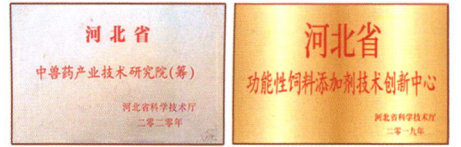 河北省
中兽药产业技术研究院(筹)
河北省科学技术厅
二零二零年
河北省
功能性饲料添加剂技术创新中心
河北省科学技术厅
二零一九年